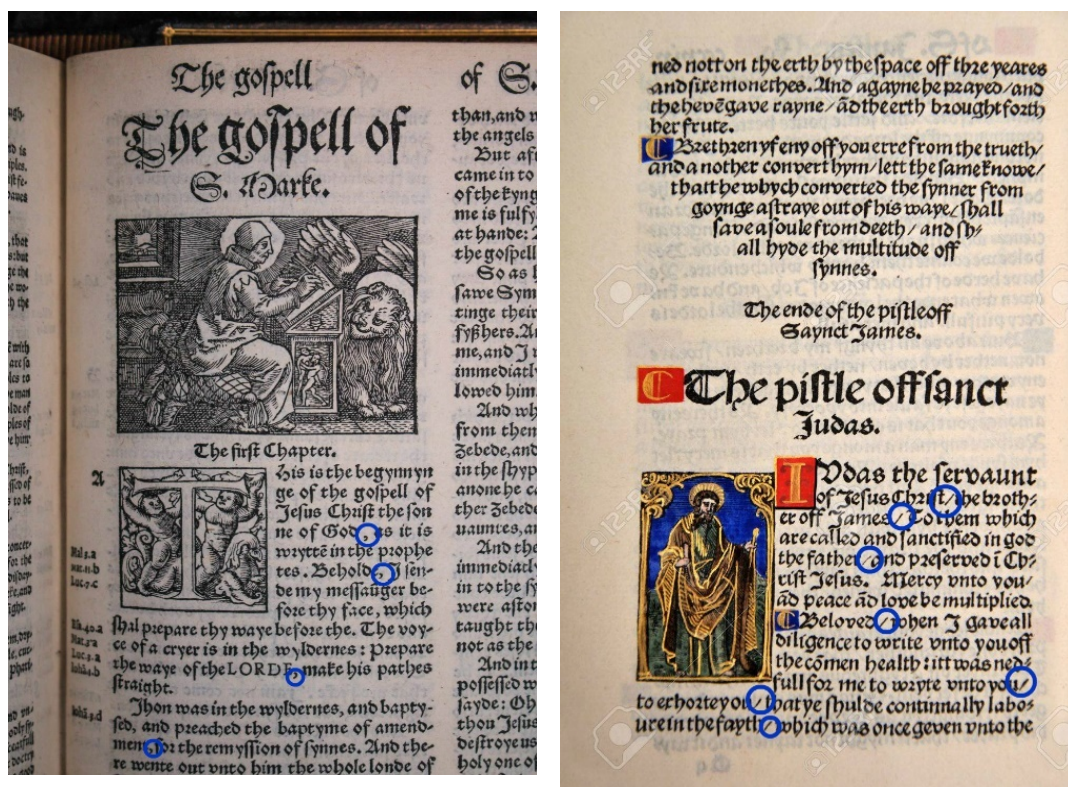 The gospell
of S.
The gospell of
S. Marke.
The first Chapter.
A
This is the begynnyn
ge of the gospell of
Jesus Christ the son
ne of God, as it is
wryttē in the prophe
tes. Behold, I sen-
de my messāuger be-
fore thy face, which
shal prepare thy waye before the. The voy-
ce of a cryer is in the wyldernes: Prepare
the waye of the LORDE, make his pathes
straight.
Jhon was in the wyldernes, and bapty-
sed, and preached the baptyme of amend-
ment, for the remyssion of synnes. And the-
re wente out vnto him the whole londe of
than, and
the angels
But
came in to
of the kyng
me is fulfy
at hande:
the gospell
So as
sawe Sym
tinge their
fysshers.
me, and J
immediatl
lowed him.
And wh
from then
Zebede, and
in the shyp
anone he
ther Zebede
vauntes, an
And the
immediatl
in to the sy
were aston
taught the
not as the
And in t
possessed w
sayde: Oh
thou Jesus
destroye us
holy one of
ned nott on the erth by the space off thre yeares
and sixe monethes. And agayne he prayed/and
the hevē gave rayne/ ād the erth brought forth
her frute.
Brethren yf eny off you erre from the trueth/
and a nother convert hym/ lett the same knowe/
that the whych converted the synner from
goynge astraye out of his waye/ shall
save a soule from deeth/ and sh-
all hyde the multitude off
synnes.
The ende of the pistle off
Saynct James.
The pistle off sanct
Judas.
IVdas the servaunt
of Jesus Christ/ the broth-
er off James/ To them which
are called and sanctified in god
the father/ and preserved ī Ch-
rist Jesus. Mercy vnto you/
ād peace ād love be multiplied.
Beloved/ when I gave all
diligence to write vnto you off
the cōmen health: itt was ned-
full for me to wryte vnto you/
to exhorte you/ that ye shulde continnally labo-
ure in the fayth/ which was once geven vnto the
123RF